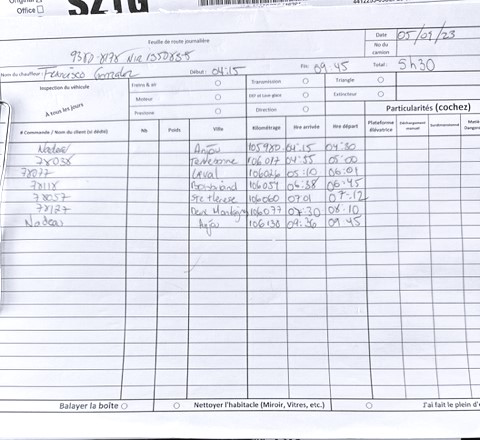 Office
SZTG
Feuille de route journalière
Date 05/01/23
No du camion
Nom du chauffeur: Francisco Gonzalez Début: 04:15 Fin: 09:45 Total: 5h30
Inspection du véhicule
À tous les jours
Freins & air
Transmission
Triangle
Moteur
Extincteur
Direction
Particularités (cochez)
# Commande / Nom du client (si dédié) Nb Poids Ville Kilométrage Hre arrivée Hre départ Plateforme élévatrice Déchargement manuel
Anjou 105980 04:15 04:30
78038 Terrebonne 106017 04:55 05:00
78077 Laval 106026 05:10 06:01
78118 Boisbriand 06:38 06:45
78057 Ste Therese 106060 07:01 07:12
78127 106077 07:30 08:10
Anjou 106130 09:36 09:45
Balayer la boîte Nettoyer l'habitacle (Miroir, Vitres, etc.) J'ai fait le plein